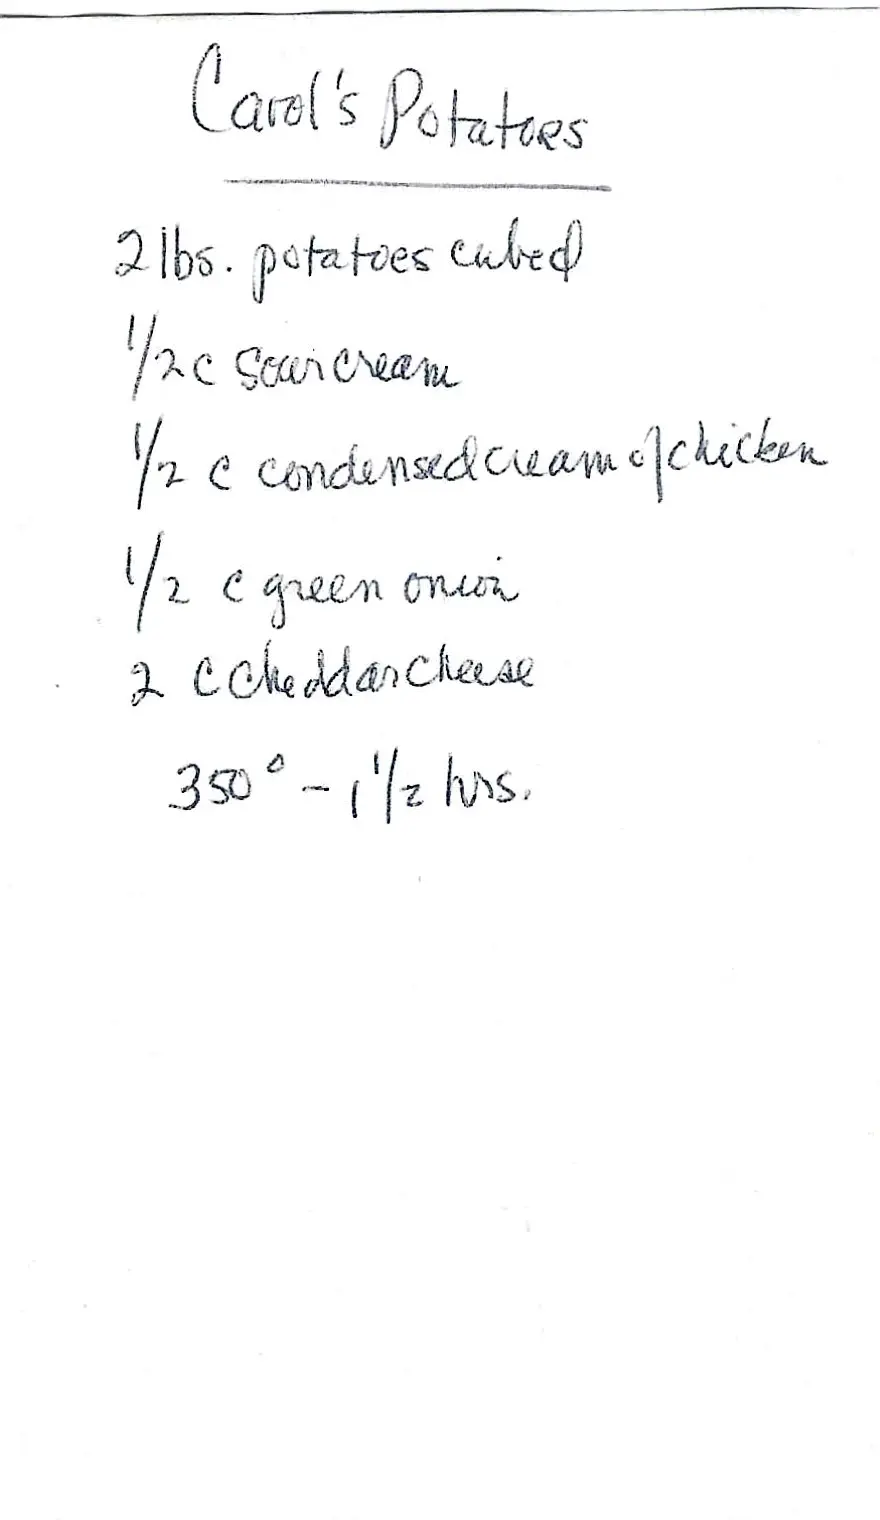 Carol's Potatoes
2 lbs. potatoes cubed
1/2 c sour cream
1/2 c condensed cream of chicken
1/2 c green onion
2 c cheddar cheese
350° - 1 1/2 hrs.